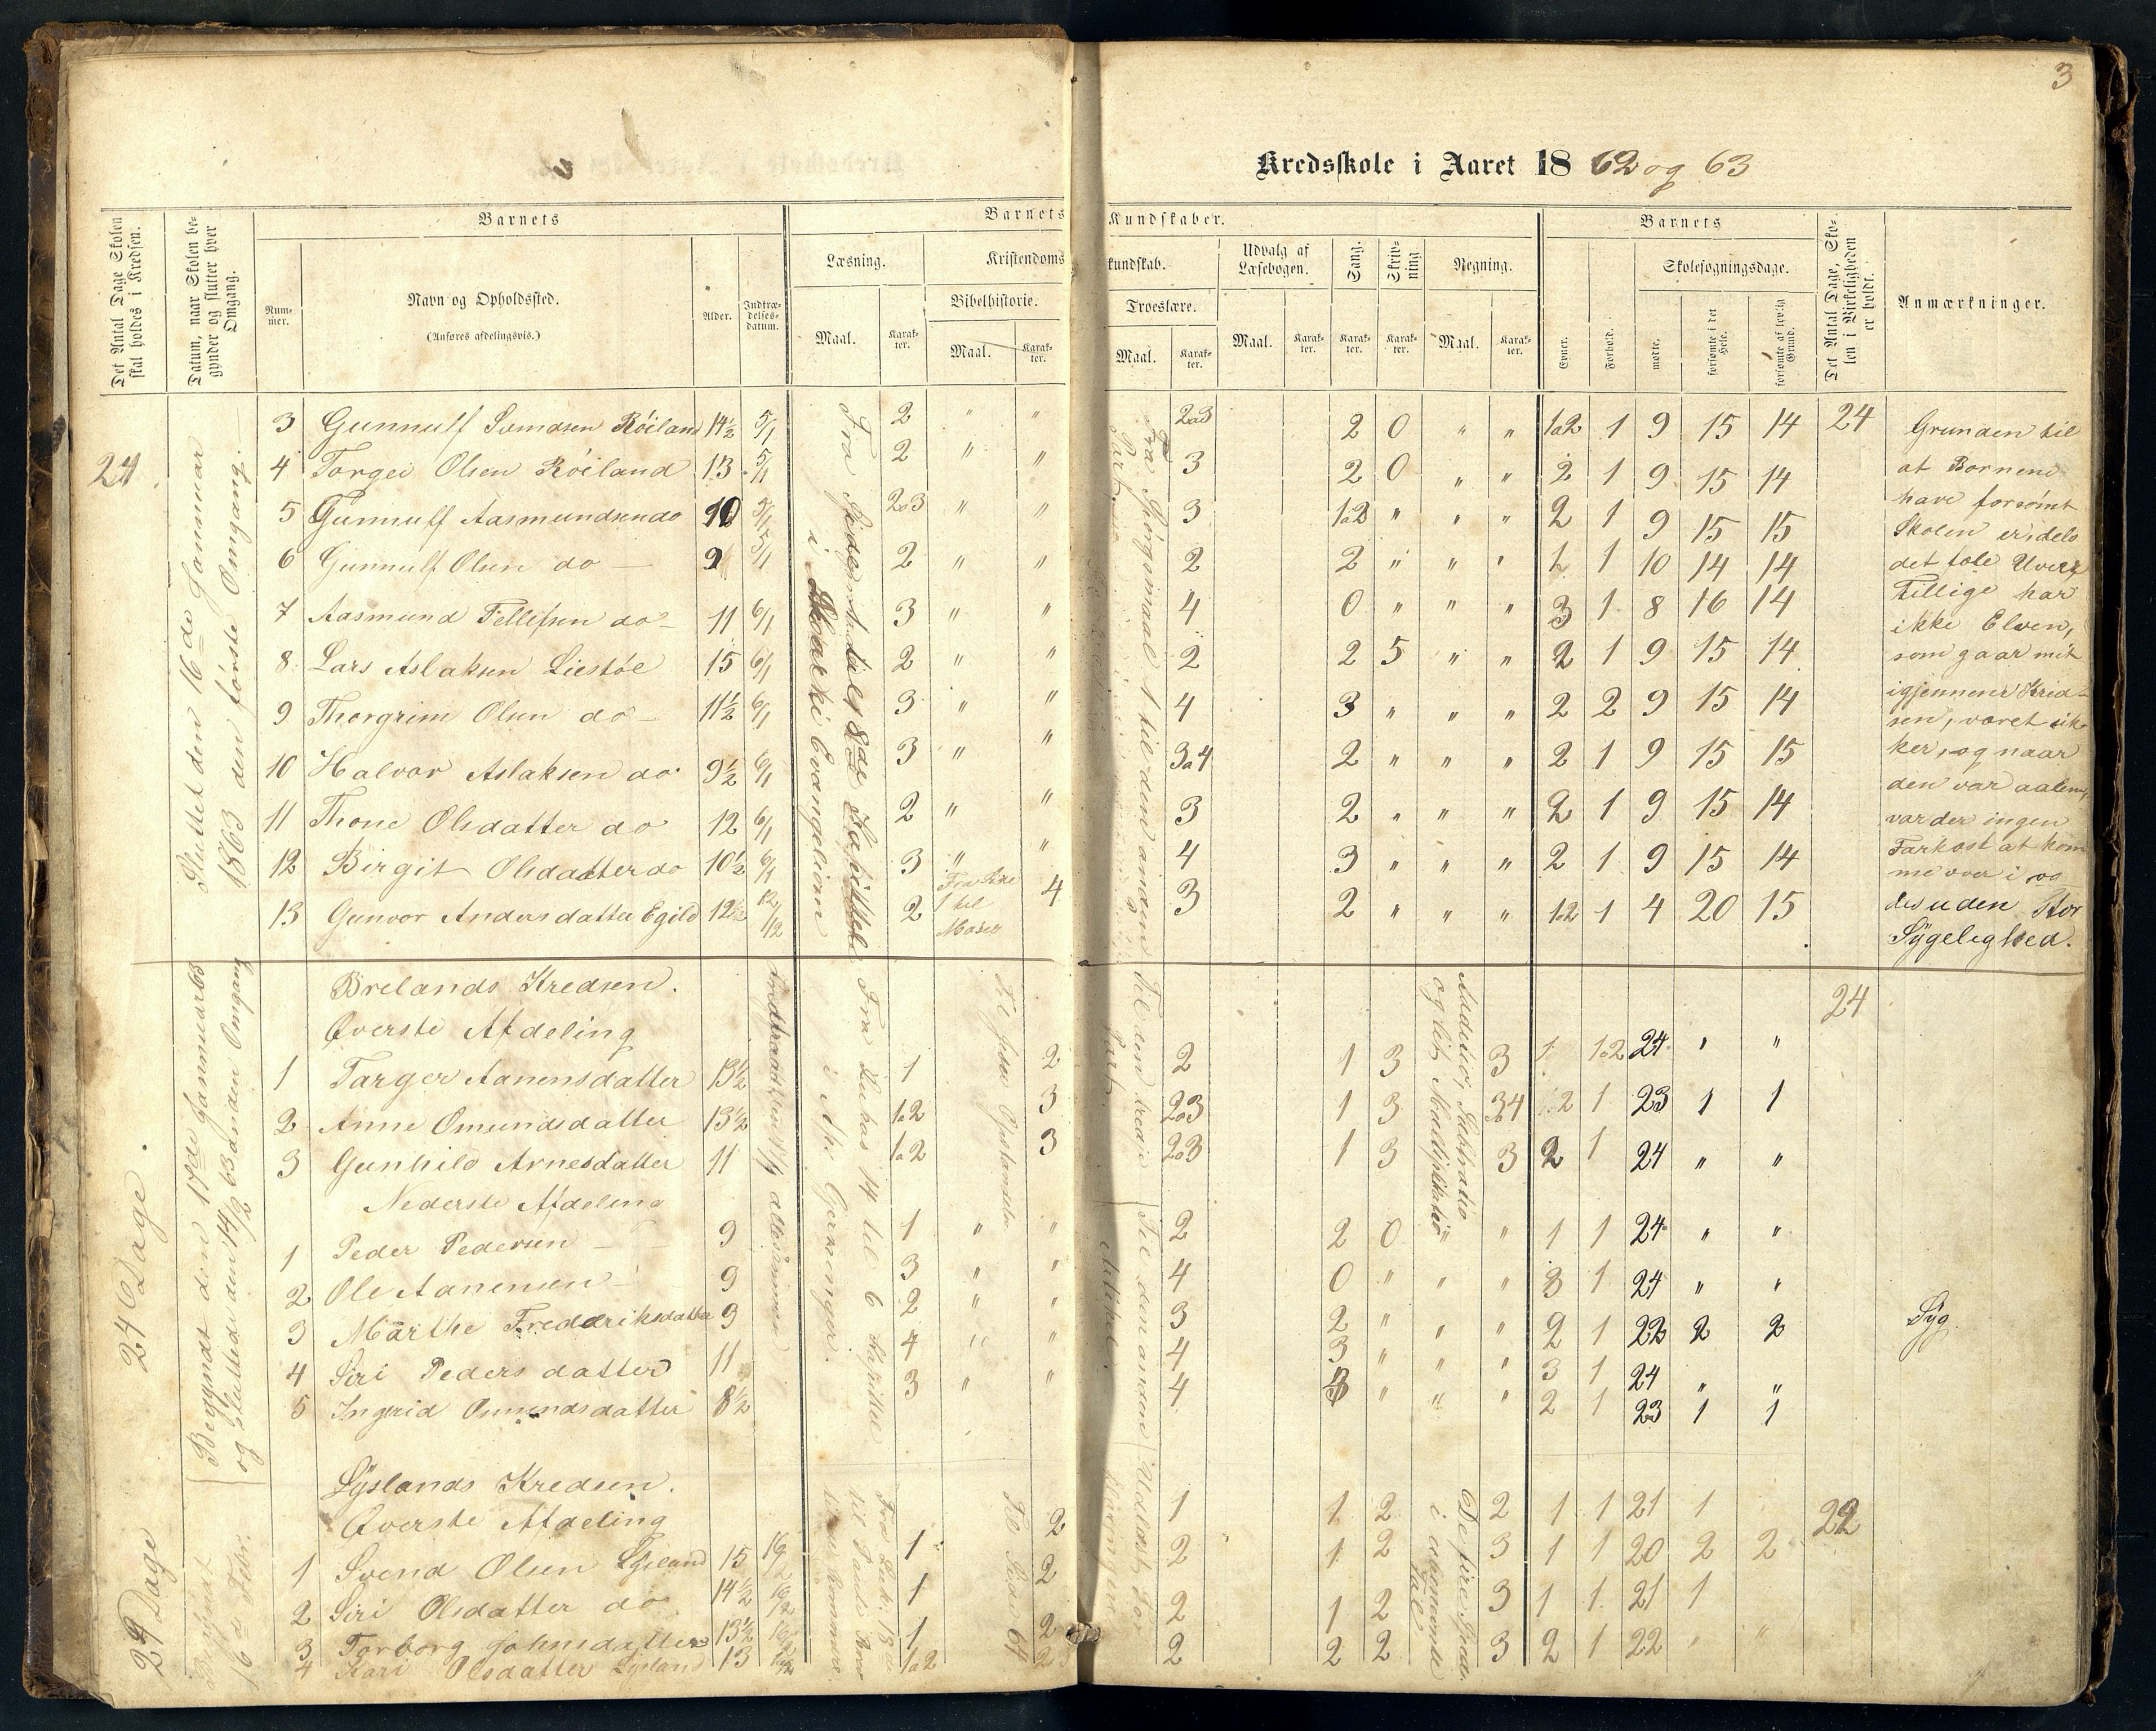 3
Kredsskole i Aaret 18 62 og 63
Det Antal Dage Skolen skal holdes i Kredsen.
Datum, naar Skolen begynder og slutter hver Omgang.
Barnets
Nummer.
Navn og Opholdssted.
(Anføres afdelingsvis.)
Alder.
Indtrædelsesdatum.
Barnets Kundskaber.
Læsning.
Maal.
Karakter.
Kristendomskundskab.
Bibelhistorie.
Maal.
Karakter.
Troeslære.
Maal.
Karakter.
Udvalg af Læsebogen.
Maal.
Karakter.
Sang.
Karakter.
Skrivning.
Karakter.
Regning.
Maal.
Karakter.
Barnets
Evner.
Forhold.
Skolesøgningsdage.
mødte.
forsømte i det Hele.
forsømte af lovlig Grund.
Det Antal Dage, Skolen i Virkeligheden er holdt.
Anmærkninger.
24
Sluttet den 16de Januar 1863 den første Omgang.
3 Gunnulf Røiland 14½ 5/1 2 " " 2a3 2 0 " " 1a2 1 9 15 14 24
4 Torgei Olsen Røiland 13 5/1 2 " " 3 2 0 " " 2 1 9 15 14
5 Gunnulf Aasmundsen do 10 5/1 2a3 " " 3 1a2 " " " 2 1 9 15 15
6 Gunnulf Olsen do 9 5/1 2 " " 2 2 " " " 1 10 14 14
7 Aasmund Tellefsen do 11 6/1 3 " " 4 0 " " " 3 1 8 16 14
8 Lars Aslaksen Liestøl 15 6/1 2 " " 2 2 5 " " 2 1 9 15 14
9 Thorgrim Olsen do 11½ 6/1 3 " " 4 3 " " " 2 2 9 15 14
10 Halvor Aslaksen do 9½ 6/1 3 " " 3a4 2 " " " 2 1 9 15 15
11 Thone Olsdatter do 12 6/1 2 " " 3 2 " " " 2 1 9 15 14
12 Birgit Olsdatter do 10½ 6/1 3 " " 4 3 " " " 2 1 9 15 14
13 Gunvor Andersdatter Egild 12½ 12/12 2 4 3 2 " " " 1a2 1 4 20 15
1 til
Moses
i Evangeliom
Grunden til
at Børnene
have forsømt
Skolen er, dels
det
Tillige har
ikke Elven,
som gaar mit
igjennem Kred-
sen, været sik-
ker, og naar
den var aaben,
var der ingen
Farkost at kom
me over i og
desuden Stor
Sygelighed.
24 Dage.
Begyndt den 17de Januuar 63
og sluttede den 14/2 63 anden Omgang
Brelands Kredsen.
Øverste Afdeling
24
1 Targer Aanensdatter 13½ 1 2 2 1 3 3 1 1a2 24 " "
2 Anne Omundsdatter 13½ 1a2 3 2a3 1 3 3a4 2 1 23 1 1
3 Gunhild Arnesdatter 11 1a2 3 2a3 1 3 3 2 1 24 " "
Nederste Afdeling
1 Peder Pedersen 9 1 " " 2 2 0 " " 1 1 24 " "
2 Ole Aanensen 9 3 " " 4 0 " " " 3 1 24 " "
3 Marthe Fredderiksdatter 9 2 " " 3 2 " " " 2 1 22 2 2 Syg
4 Siri Pedersdatter 11 4 " " 4 3 " " " 3 1 24 " "
5 Ingrid Omundsdatter 8½ 3 " " 4 3 " " " 2 1 23 1 1
Fra Lukas 14 til 6 Kapittel
i Ap. Gjerninger.
Additio, Subtratio
og lit Multiplikatio
Til den tredie
Part.
Til den anden
Artikel.
Dage
Begyndt
16de Febr.
Lyslands Kredsen.
Øverste Afdeling
22
1 Svend Olsen Lysland 15 16/2 1 2 1 1 2 2 1 1 21 1
2 Siri Olsdatter do 14½ 16/2 1 2 2 1 2 3 1 1 20 2 2
3 Torborg Johnsdatter 13½ 1 2 2 1 2 3 1 1 21 1
4 Kari Olsdatter Lysland 13 1a2 2 2 2 2 3 2 1 22 " "
De fire
i ubenevnte
Tal